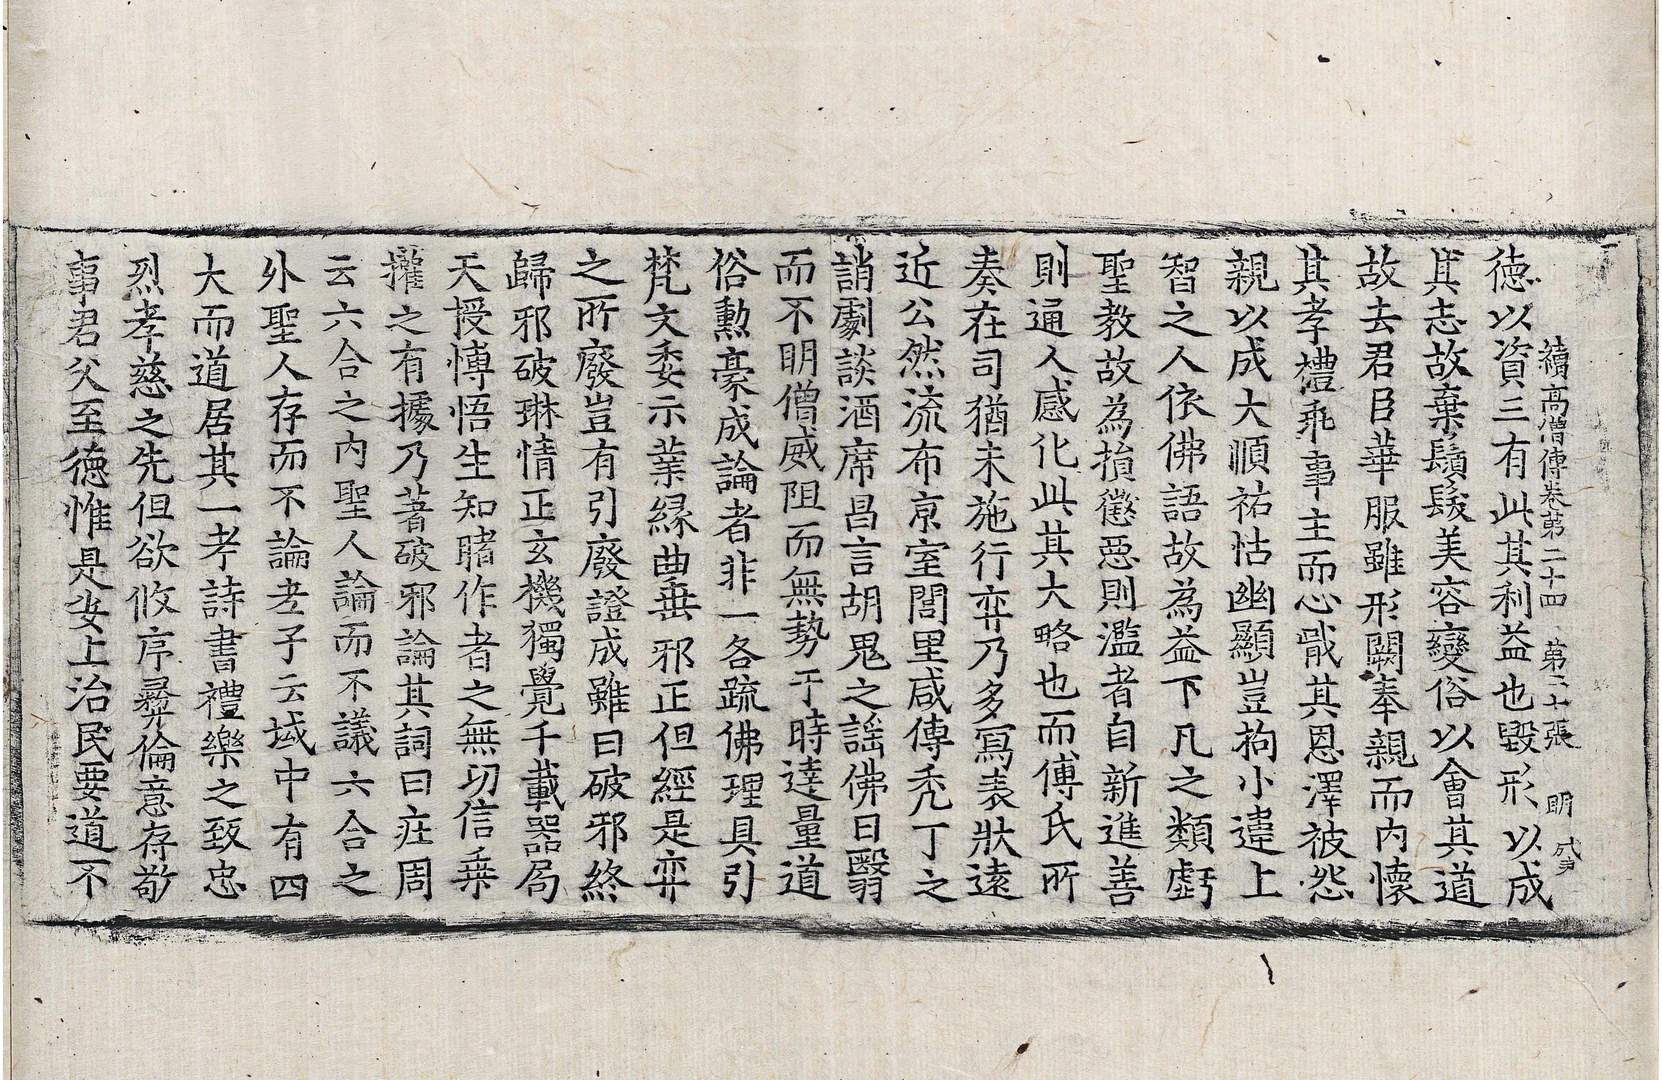 續高僧傳卷第二十四 第二十張 明 戊
德以資三有此其利益也毀形以成
其志故棄鬚髮美容變俗以會其道
故去君臣華服雖形闕奉親而內懷
其孝禮乖事主而心戢其恩澤被怨
親以成大順祐怙幽顯豈拘小違上
智之人依佛語故為益下凡之類虧
聖教故為損懲惡則濫者自新進善
則通人感化此其大略也而傅氏所
奏在司猶未施行弈乃多寫表狀遠
近公然流布京室閭里咸傳禿丁之
誚劇談酒席昌言胡鬼之謠佛日翳
而不明僧威阻而無勢于時達量道
俗勳豪成論者非一各疏佛理具引
梵文委示業緣曲垂邪正但經是弈
之所廢豈有引廢證成雖曰破邪終
歸邪破琳情正玄機獨覺千載器局
天授博悟生知睹作者之無功信乘
權之有據乃著破邪論其詞曰莊周
云六合之內聖人論而不議六合之
外聖人存而不論老子云域中有四
大而道居其一考詩書禮樂之致忠
烈孝慈之先但欲攸序彝倫意存敬
事君父至德惟是安上治民要道不